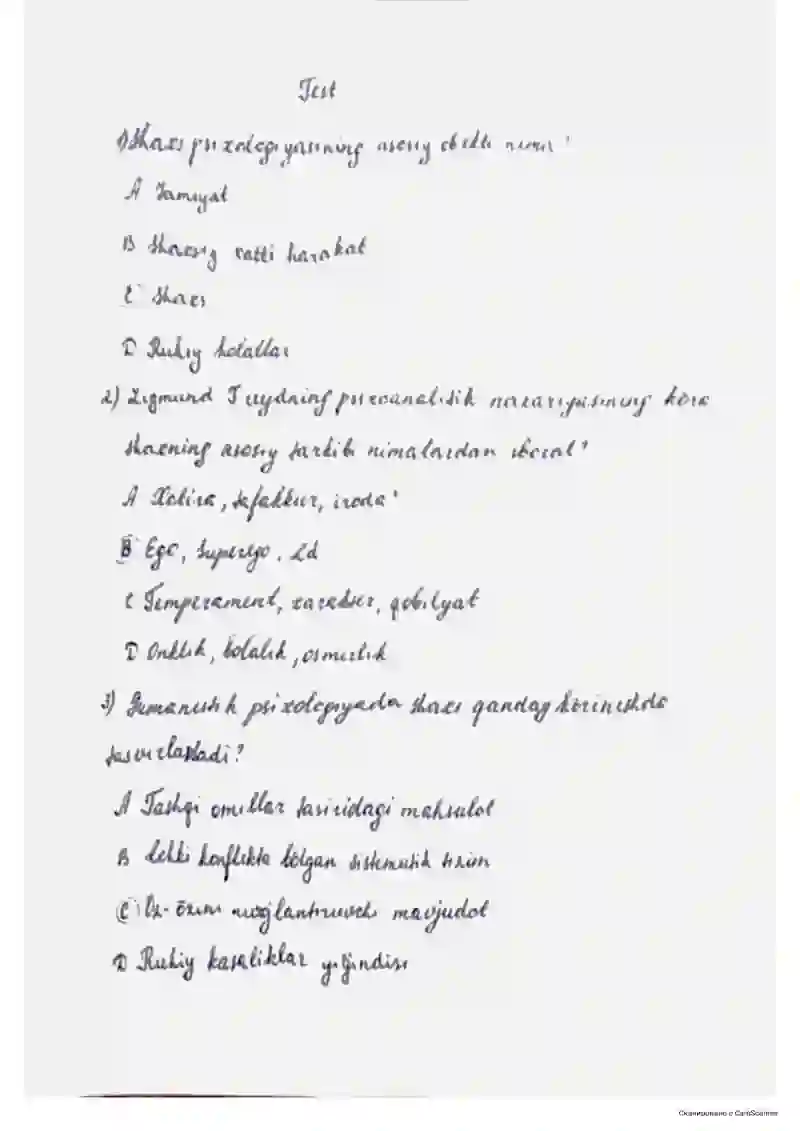 Test
1) Shaxs psixologiyasining asosiy obekti nima?
A Jamiyat
B Shaxsiy xatti harakat
C Shaxs
D Ruhiy holatlar
2) Zigmund Freydning psixoanalitik nazariyasining köra
shaxsning asosiy tarkibi nimalardan iborat?
A Xotira, tafakkur, iroda
B Ego, superego, Id
C Temperament, xarakter, qobilyat
D Onklik, bolalik, osmirlik
3) Gumanistik psixologiyada shaxs qanday körinishda
tasvirlanadi?
A Tashqi omillar tasiridagi mahsulot
B Ichki konflikta bölgan sistematik tizim
C Öz-özini rivojlantiruvchi mavjudot
D Ruhiy kasaliklar yiğindisi
Сканировано с CamScanner